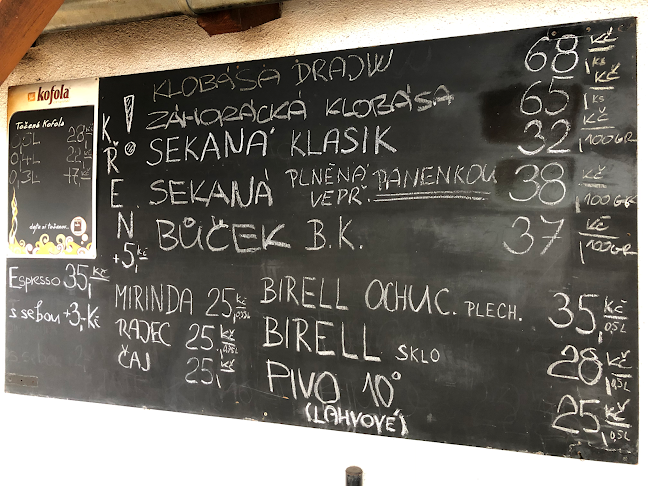 kofola
Točená Kofola
0,5L 28 Kč
0,4L Kč
0,3L 17 Kč
dejte si točenou...
! KŘEN
+5,- Kč
KLOBÁSA DRAJW 68 Kč 1 ks
ZÁHORÁCKÁ KLOBÁSA 65 Kč 1 ks
SEKANÁ KLASIK 32 Kč 100GR
SEKANÁ PLNĚNÁ VEPŘ. PANENKOU 38 Kč 100GR
BŮČEK B.K. 37 Kč 100GR
Espresso 35,- Kč
s sebou +3,- Kč
MIRINDA 25 Kč 0,33L
RAJEC 25 Kč 0,75L
ČAJ 25,- Kč
BIRELL OCHUC. PLECH. 35,- Kč 0,5L
BIRELL SKLO 28 Kč 0,5L
PIVO 10° 25 Kč 0,5L
(LAHVOVÉ)